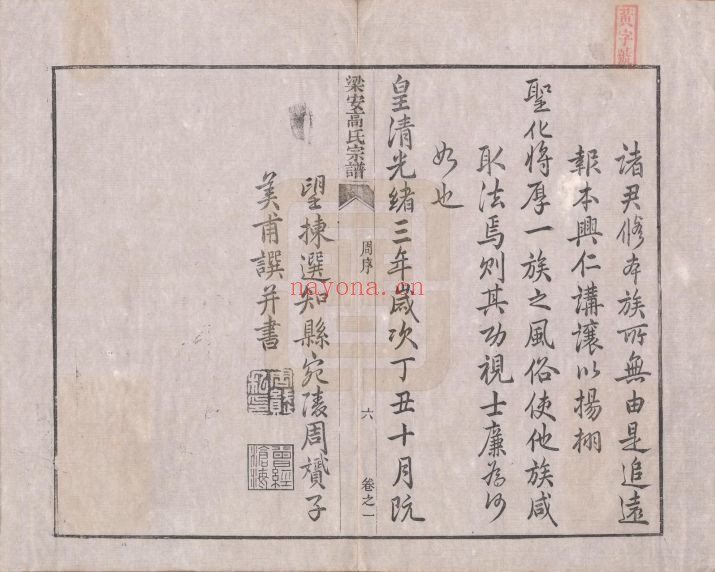 黃字號
諸君脩本族所無由是追遠
報本興仁講讓以揚栩
聖化將厚一族之風俗使他族咸
取法焉則其功視士廉為何
如也
皇清光緒三年歲次丁丑十月既
梁安高氏宗譜
周序
六
卷之一
望揀選知縣宛陵周贇子
美甫譔并書
曾經滄海
nayona.cn